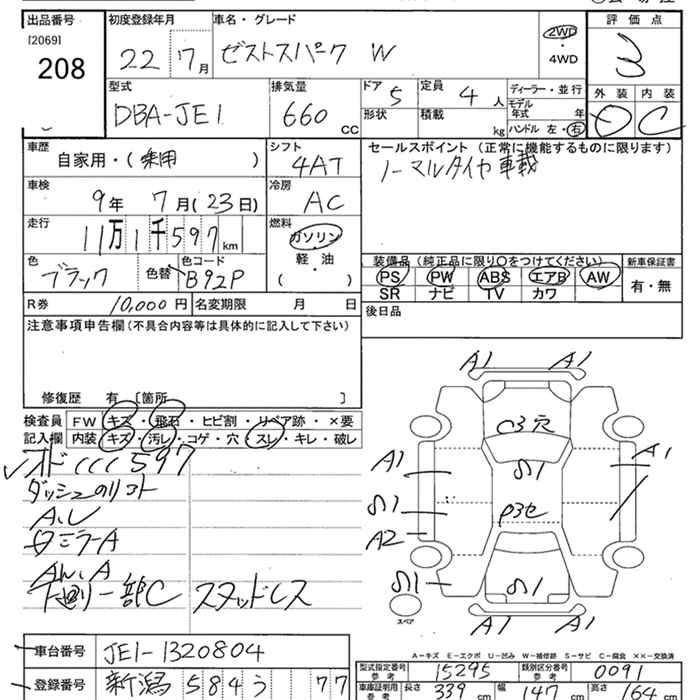 出品番号 初度登録年月 車名・グレード 評価点
[2069]
208
22 7月 ゼストスパーク W 2WD・4WD 3
型式 排気量 ドア 5 定員 4人 ディーラー・並行 外装 内装
DBA-JE1 660cc 形状 積載 kg モデル年式 年 D C
ハンドル 左・右
車歴 シフト セールスポイント (正常に機能するものに限ります)
自家用・(乗用) 4AT ノーマルタイヤ車載
車検 冷房
9年 7月(23日) AC
走行 燃料
11万1千597km ガソリン・軽・油 ( )
装備品 (純正品に限り○をつけてください) 新車保証書
色 色替 色コード PS PW ABS エアB AW 有・無
ブラック B92P SR ナビ TV カワ
R券 10,000円 名変期限 月 日 後日品
注意事項申告欄(不具合内容等は具体的に記入して下さい)
修復歴 有 [箇所 ]
検査員 FW キズ・飛石・ヒビ割・リペア跡・×要
記入欄 内装 キズ・汚レ・コゲ・穴・スレ・キレ・破レ
597
A1 A1
C3穴
A1 A1
A2
A1 A1
スペア
A、U
ミラーA
下廻り一部C スタッドレス
A-キズ E-エクボ U-凹み W-補修跡 S-サビ C-腐食 ××-交換済
車台番号 JE1-1320804
型式指定番号 参考 15295 類別区分番号 参考 0091
登録番号 新潟 584う 77
車庫証明用 参考 長さ 339cm 幅 147cm 高さ 164cm